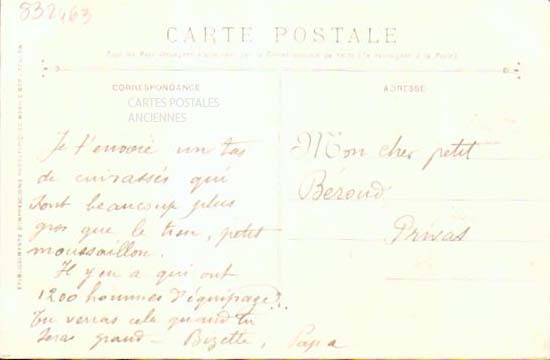 832463
CARTE POSTALE
CORRESPONDANCE
ADRESSE
CARTES POSTALES
ANCIENNES
Je t'envoie un tas
de cuirassés qui
sont beaucoup plus
gros que le tien, petit
moussaillon.
Il y en a qui ont
1200 hommes d'équipage?..
Tu verras cela quand tu
seras grand - Papa
Mon cher petit
Béroud
Privas